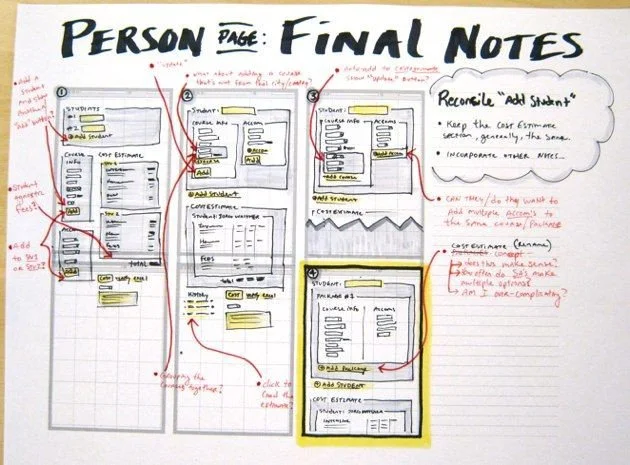 PERSON PAGE: FINAL NOTES
"update"
Add a student and show another "add" button?
Student specific fees?
Add to StU1 or StU2?
①
STUDENTS
#1
#2
⊕ Add Student
COURSE INFO
COST ESTIMATE
Stu 1
Add
Stu 2
ACCOM
Add
FEES
TOTAL
COST
what about adding a course
that's not from this city/center?
②
Student:
COURSE INFO
Accom
Add
Add
⊕ Add Student
COST ESTIMATE
FEES
total
History
COST
Grouping the courses together?
click to load the estimate?
③
STUDENT:
COURSE INFO
ACCOMS
Add course
⊕ Add Student
COST ESTIMATE
show "update" button?
Reconcile "Add Student"
• KEEP THE COST ESTIMATE
SECTION, GENERALLY, THE SAME.
• INCORPORATE OTHER NOTES...
• CAN THEY/do THEY WANT TO
Add multiple Accom's to
the same course/PACKAGE
COST ESTIMATE (RENAME)
concept
Does this make sense?
How often do SA's make
multiple options?
Am I over-complicating?
④
STUDENT:
PACKAGE #1
COURSE INFO
ACCOMS
⊕ Add Package
⊕ Add STUDENT
COST ESTIMATE
STUDENT: